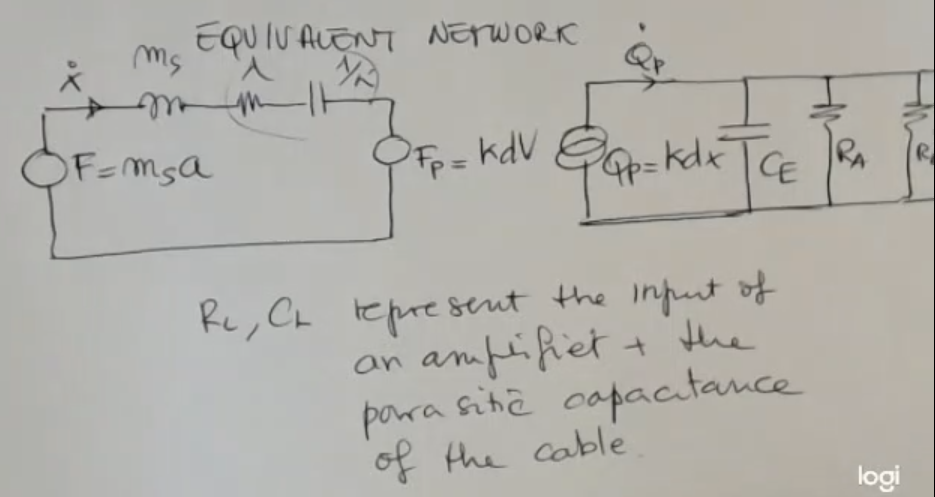 EQUIVALENT NETWORK
ẋ
ms
λ
1/k
F = msa
Fp = kdV
Q̇p
Qp = kdx
CE
RA
RL, CL represent the input of
an amplifier + the
parasitic capacitance
of the cable.
logi